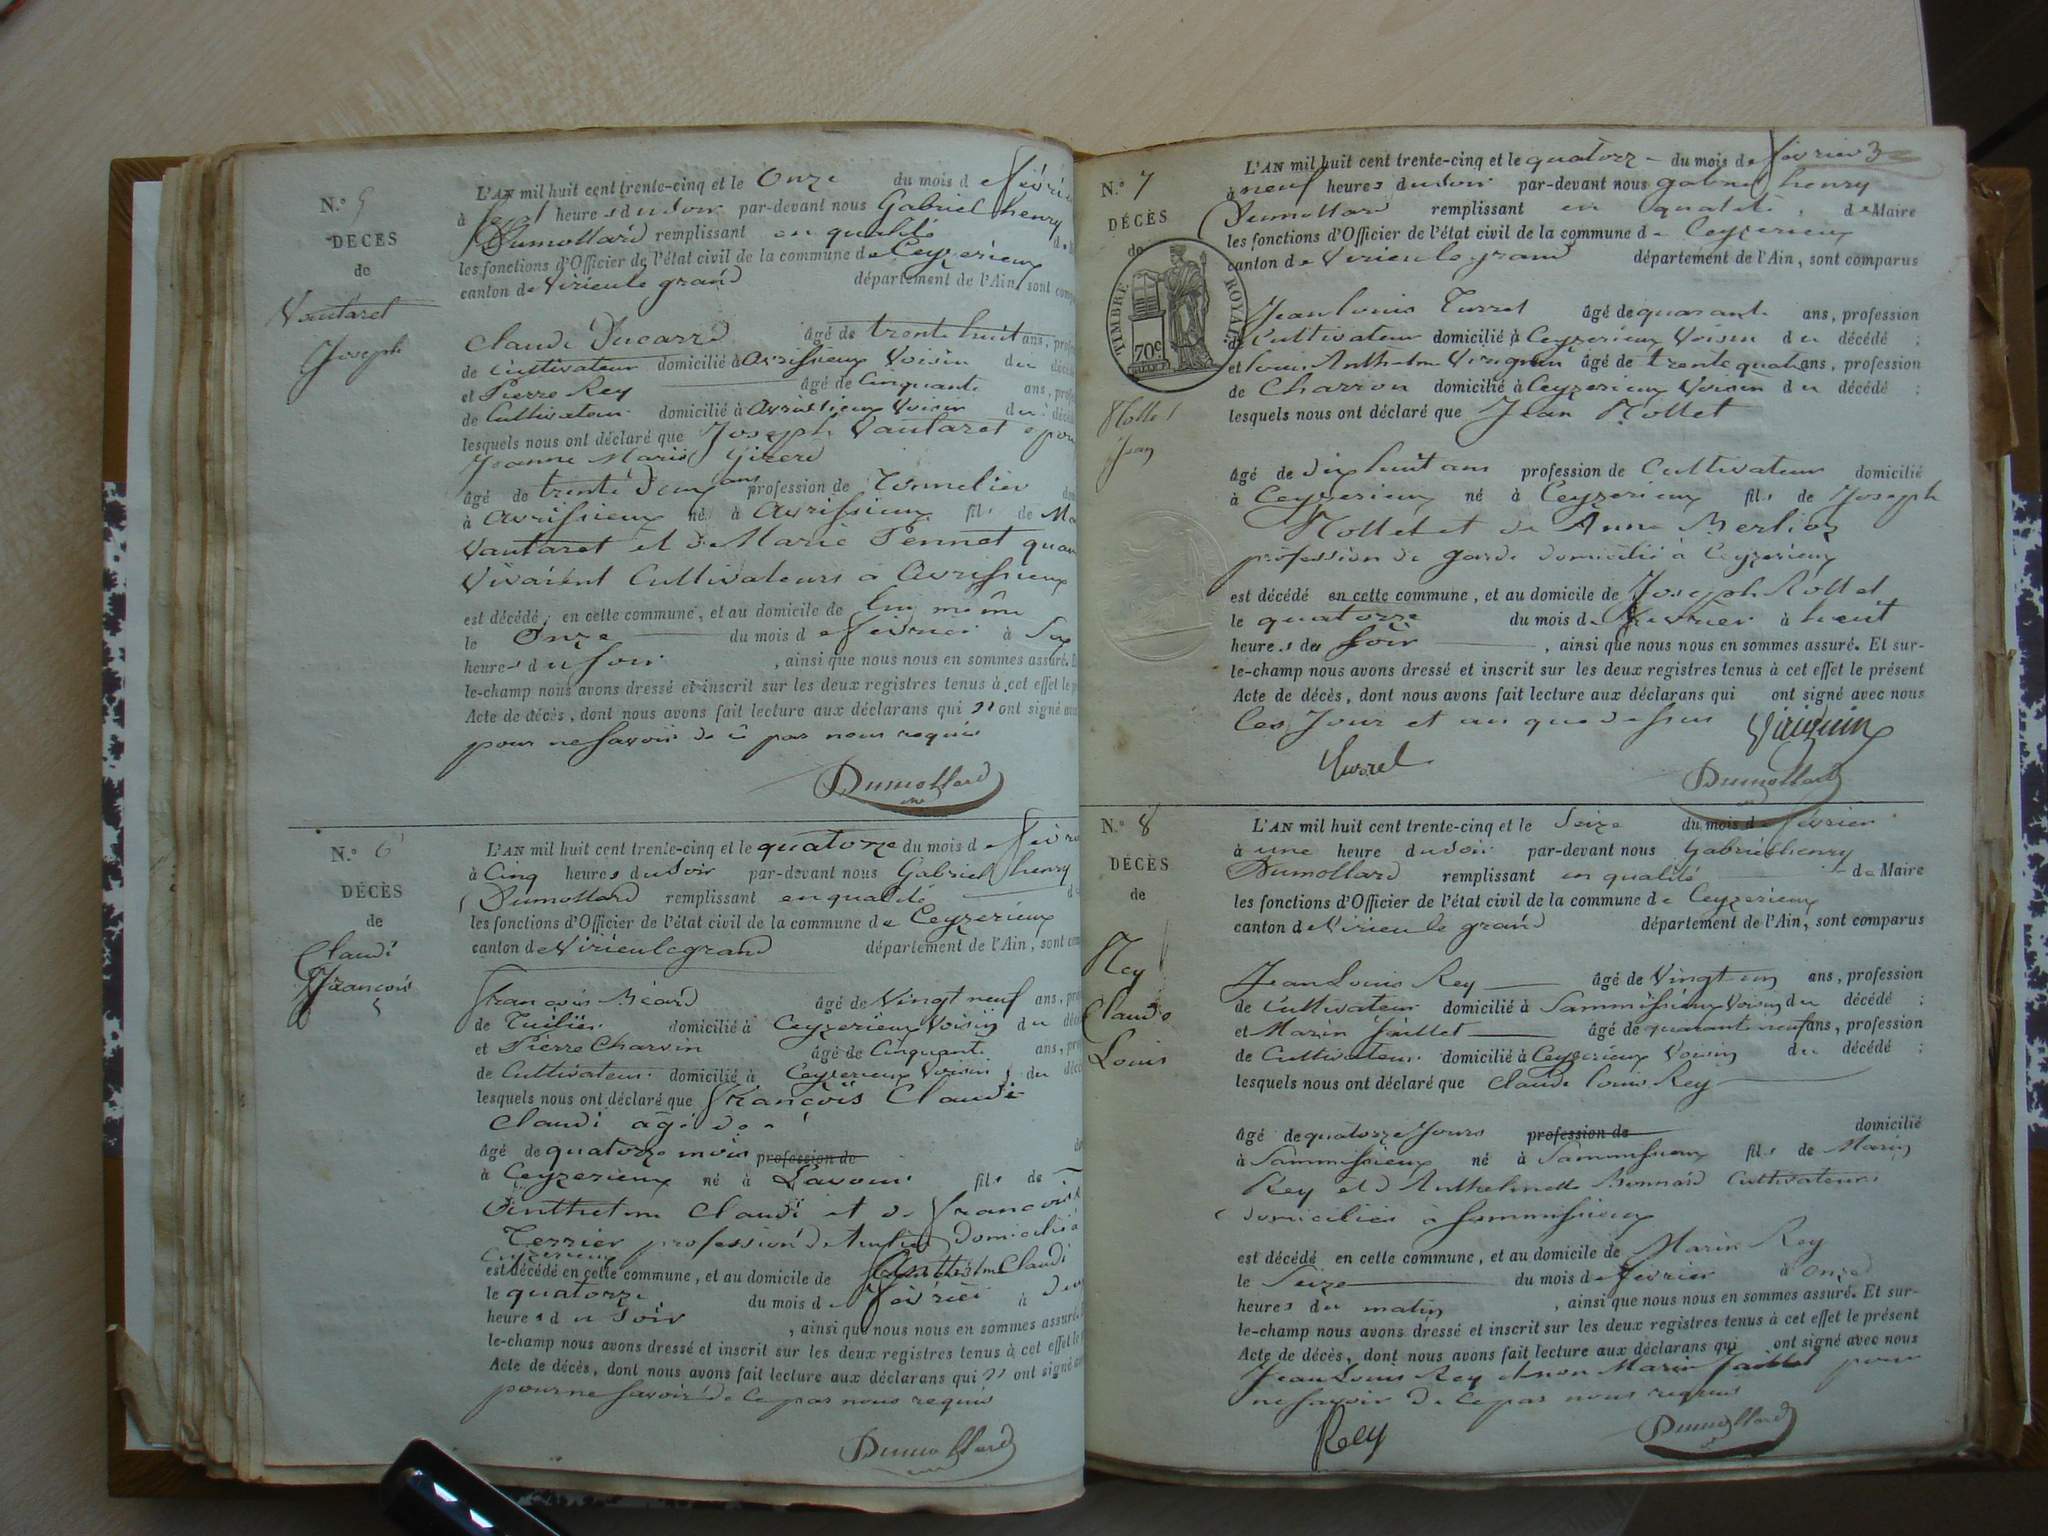 N.° 5
DÉCÈS
de
Vautaret
Joseph
L'AN mil huit cent trente-cinq et le Onze du mois de
à Sept heures du soir par-devant nous Gabriel henry
Dumollard remplissant en qualité
les fonctions d'Officier de l'état civil de la commune de Ceyzerieux
canton de Virieu le grand département de l'Ain, sont
Claude Ducarre âgé de trente huit ans,
de Cultivateur domicilié à Avrissieux Voisin du
et Pierre Rey âgé de Cinquante ans,
de Cultivateur domicilié à Avrissieux Voisin du
lesquels nous ont déclaré que Joseph Vautaret
Jeanne Marie
âgé de trente deux ans profession de Tonnelier
à Avrissieux né à Avrissieux fils de
Vautaret et de Marie Pennet
Vivaient Cultivateurs à Avrissieux
est décédé en cette commune, et au domicile de lui même
le Onze du mois de fevrier à Six
heures du soir, ainsi que nous nous en sommes assuré.
le-champ nous avons dressé et inscrit sur les deux registres tenus à cet effet le
Acte de décès, dont nous avons fait lecture aux déclarans qui n'ont signé
pour ne savoir de ce par nous requis
Dumollard
N.° 6
DÉCÈS
de
Claudi
François
L'AN mil huit cent trente-cinq et le quatorze du mois de
à Cinq heures du soir par-devant nous Gabriel henry
Dumollard remplissant en qualité
les fonctions d'Officier de l'état civil de la commune de Ceyzerieux
canton de Virieu le grand département de l'Ain, sont
François Béard âgé de Vingt neuf ans,
de Tuilier domicilié à Ceyzerieux Voisin du
et Pierre Charvin âgé de Cinquante ans,
de Cultivateur domicilié à Ceyzerieux Voisin du
lesquels nous ont déclaré que François Claudi
Claudi âgé de
âgé de quatorze mois profession de
à Ceyzerieux né à Lavours fils de
Anthelme Claudi et de
Terrier profession de domicilié à
Ceyzerieux
est décédé en cette commune, et au domicile de Anthelme Claudi
le quatorze du mois de fevrier à
heures du Soir, ainsi que nous nous en sommes assuré.
le-champ nous avons dressé et inscrit sur les deux registres tenus à cet effet le
Acte de décès, dont nous avons fait lecture aux déclarans qui n'ont signé
pour ne savoir de ce par nous requis
Dumollard
N.° 7
DÉCÈS
de
TIMBRE ROYAL
70c
Rollet
Jean
L'AN mil huit cent trente-cinq et le quatorze du mois de fevrier 3
à neuf heures du soir par-devant nous gabriel henry
Dumollard remplissant en qualité, de Maire
les fonctions d'Officier de l'état civil de la commune de Ceyzerieux
canton de Virieu le grand département de l'Ain, sont comparus
Jean louis Turrel âgé de quarante ans, profession
de Cultivateur domicilié à Ceyzerieux Voisin du décédé ;
et louis Anthelme âgé de trente quatre ans, profession
de Charron domicilié à Ceyzerieux Voisin du décédé ;
lesquels nous ont déclaré que Jean Rollet
âgé de dix huit ans profession de Cultivateur domicilié
à Ceyzerieux né à Ceyzerieux fils de Joseph
Rollet et de Anne Berlioz
profession de garde domicilié à Ceyzerieux
est décédé en cette commune, et au domicile de Joseph Rollet
le quatorze du mois de fevrier à huit
heures du soir, ainsi que nous nous en sommes assuré. Et sur-
le-champ nous avons dressé et inscrit sur les deux registres tenus à cet effet le présent
Acte de décès, dont nous avons fait lecture aux déclarans qui ont signé avec nous
les Jour et an que dessus
Turrel
Dumollard
N.° 8
DÉCÈS
de
Rey
Claude
Louis
L'AN mil huit cent trente-cinq et le Seize du mois de fevrier
à une heure du soir par-devant nous Gabriel henry
Dumollard remplissant en qualité de Maire
les fonctions d'Officier de l'état civil de la commune de Ceyzerieux
canton de Virieu le grand département de l'Ain, sont comparus
Jean Louis Rey âgé de Vingt un ans, profession
de Cultivateur domicilié à Sammissieux Voisin du décédé ;
et Marin Jaillet âgé de quarante neuf ans, profession
de Cultivateur domicilié à Ceyzerieux Voisin du décédé ;
lesquels nous ont déclaré que Claude louis Rey
âgé de quatorze Jours profession de domicilié
à Sammissieux né à Sammissieux fils de Marin
Rey et d'Anthelmette Bonnard Cultivateurs
domiciliés à Sammissieux
est décédé en cette commune, et au domicile de Marin Rey
le Seize du mois de fevrier à onze
heures du matin, ainsi que nous nous en sommes assuré. Et sur-
le-champ nous avons dressé et inscrit sur les deux registres tenus à cet effet le présent
Acte de décès, dont nous avons fait lecture aux déclarans qui ont signé avec nous
Jean Louis Rey et non Marin Jaillet pour
ne savoir de ce par nous requis
Rey
Dumollard